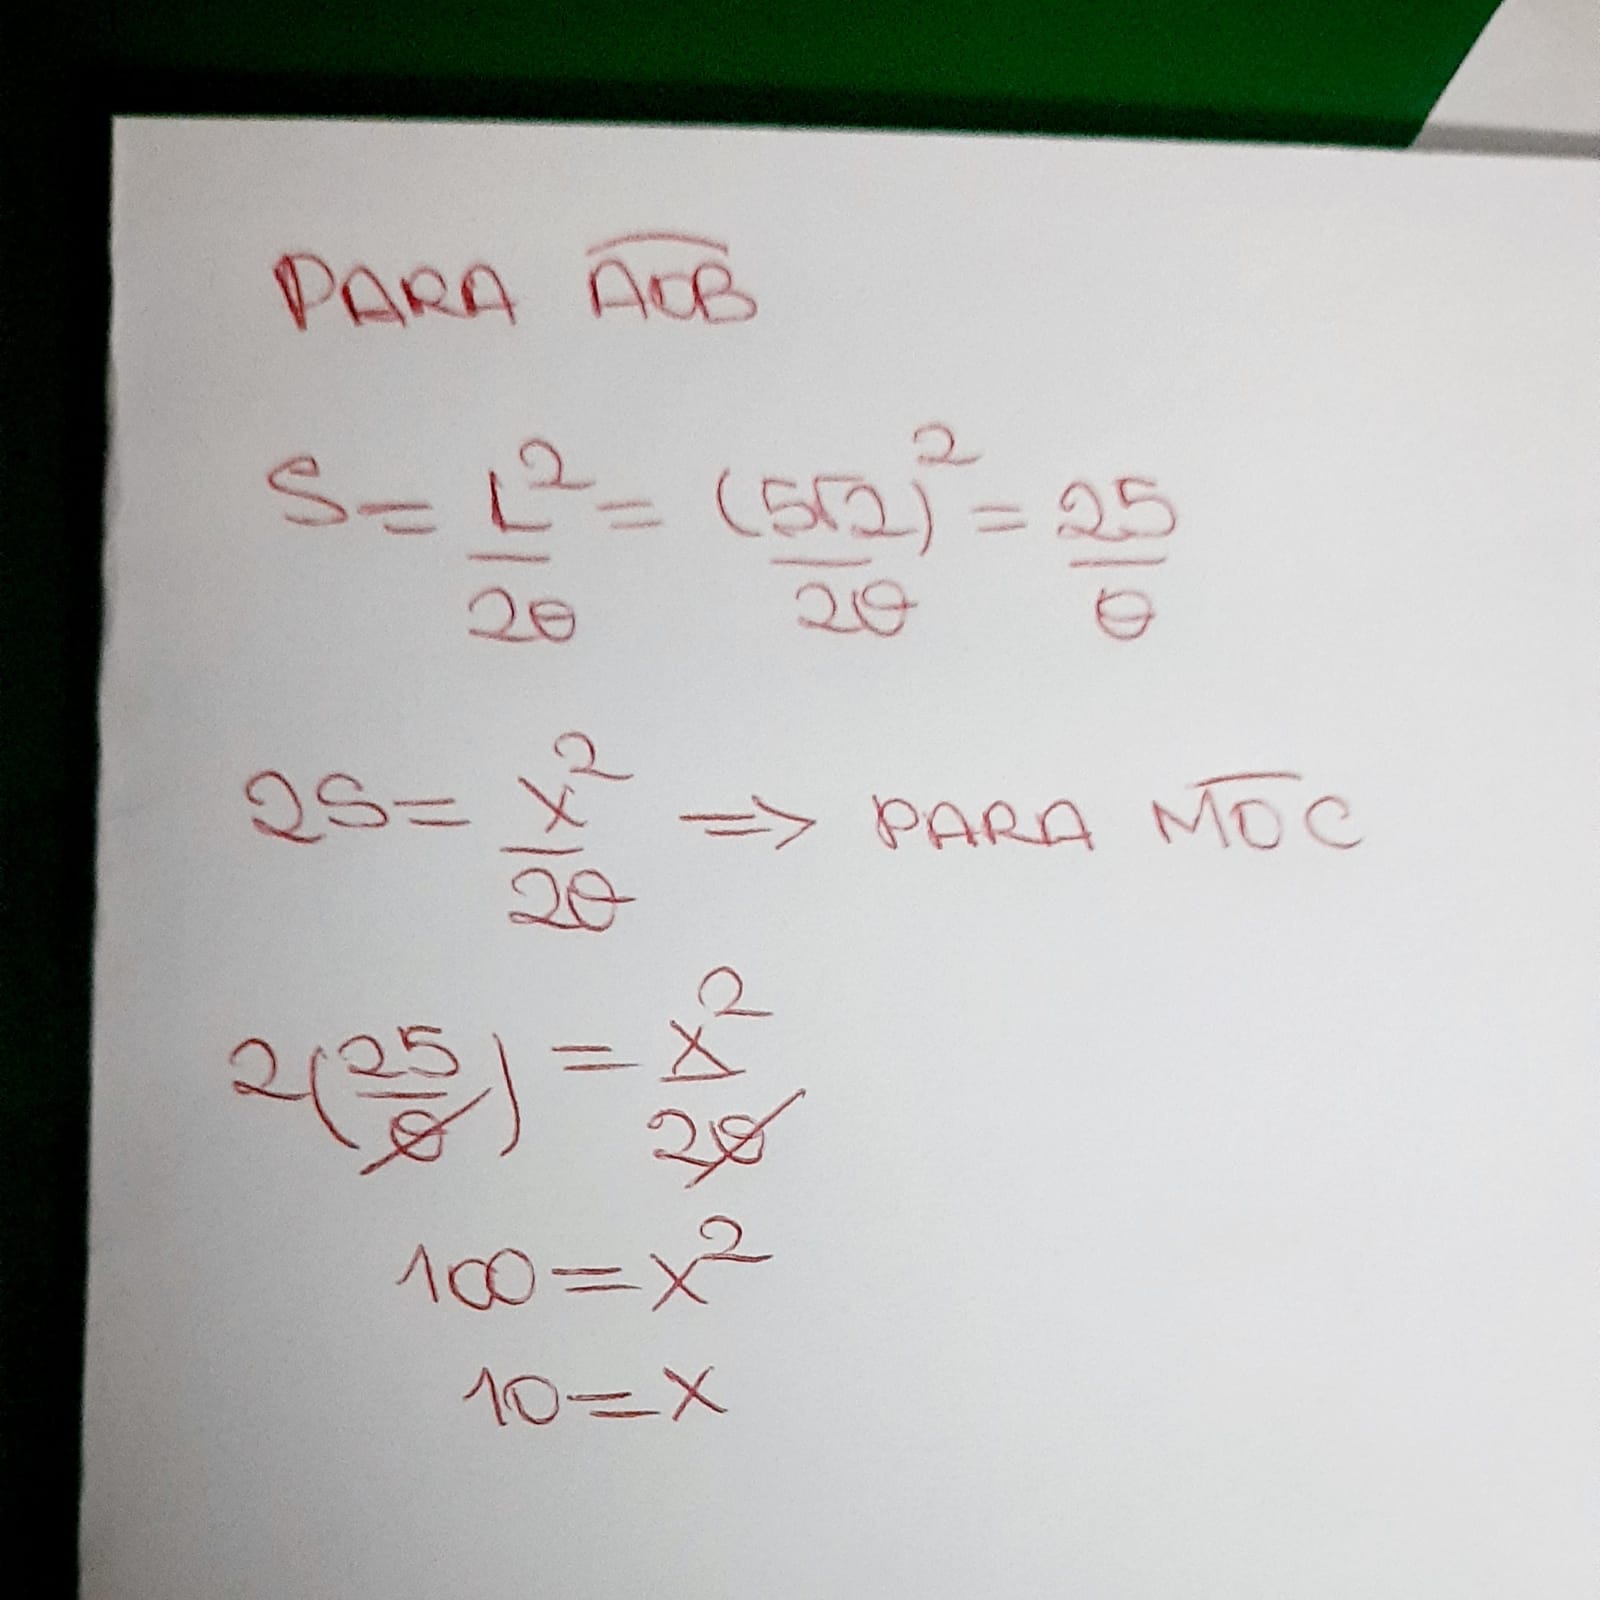 PARA A͞O͞B
S = L²/2θ = (5√2)²/2θ = 25/θ
2S = x²/2θ ⇒ PARA M͞O͞C
2(25/θ) = x²/2θ
100 = x²
10 = x